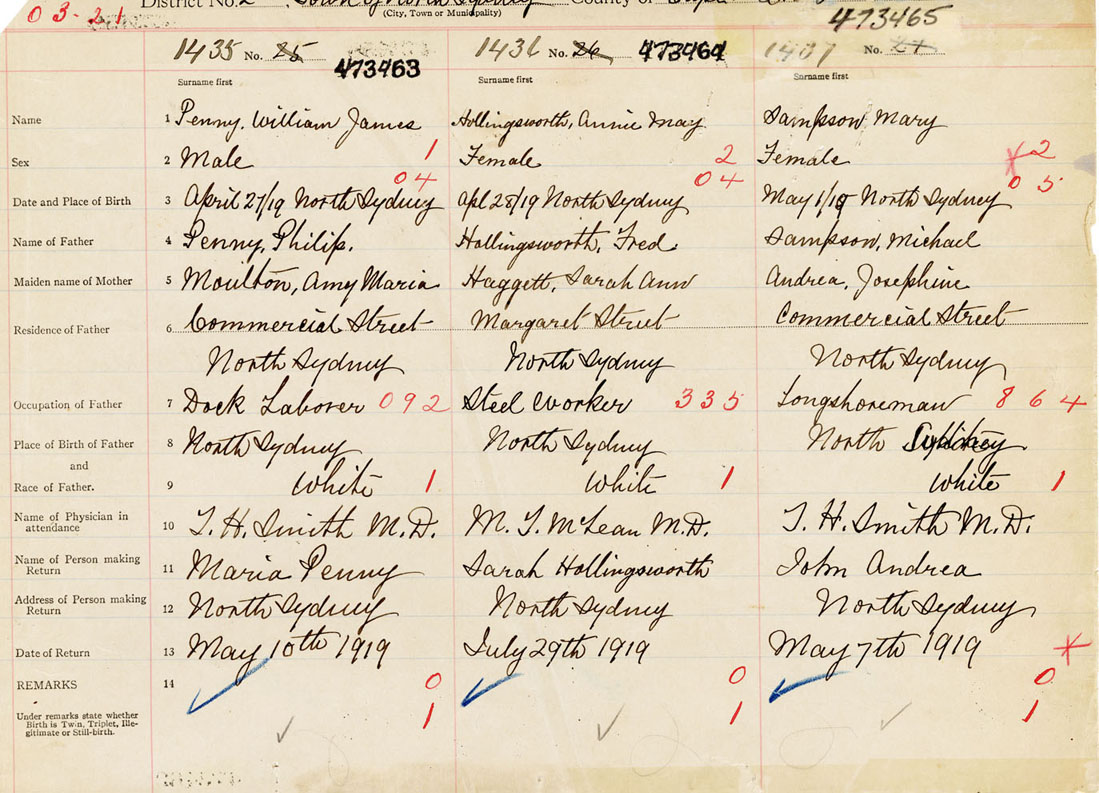 District No. 2, Town of North Sydney County of
03-21 (City, Town or Municipality) 473465
1435 No. 25 1436 No. 26 473464 1437 No. 27
473463
Surname first Surname first Surname first
Name 1 Penny, William James Hollingsworth, Annie May Sampson, Mary
Sex 2 Male 1 Female 2 Female 2
04 04 05
Date and Place of Birth 3 April 27/19 North Sydney Apl 28/19 North Sydney May 1/19 North Sydney
Name of Father 4 Penny, Philip. Hollingsworth, Fred Sampson, Michael
Maiden name of Mother 5 Moulton, Amy Maria Haggett, Sarah Ann Andrea, Josephine
Residence of Father 6 Commercial Street Margaret Street Commercial Street
North Sydney North Sydney North Sydney
Occupation of Father 7 Dock Laborer 092 Steel Worker 335 Longshoreman 864
Place of Birth of Father 8 North Sydney North Sydney North Sydney
and
Race of Father. 9 White 1 White 1 White 1
Name of Physician in
attendance 10 T. H. Smith M.D. M. T. McLean M.D. T. H. Smith M.D.
Name of Person making
Return 11 Maria Penny Sarah Hollingsworth John Andrea
Address of Person making
Return 12 North Sydney North Sydney North Sydney
Date of Return 13 May 10th 1919 July 29th 1919 May 7th 1919
REMARKS 14 0 0 0
Under remarks state whether 1 1 1
Birth is Twin, Triplet, Ille-
gitimate or Still-birth.